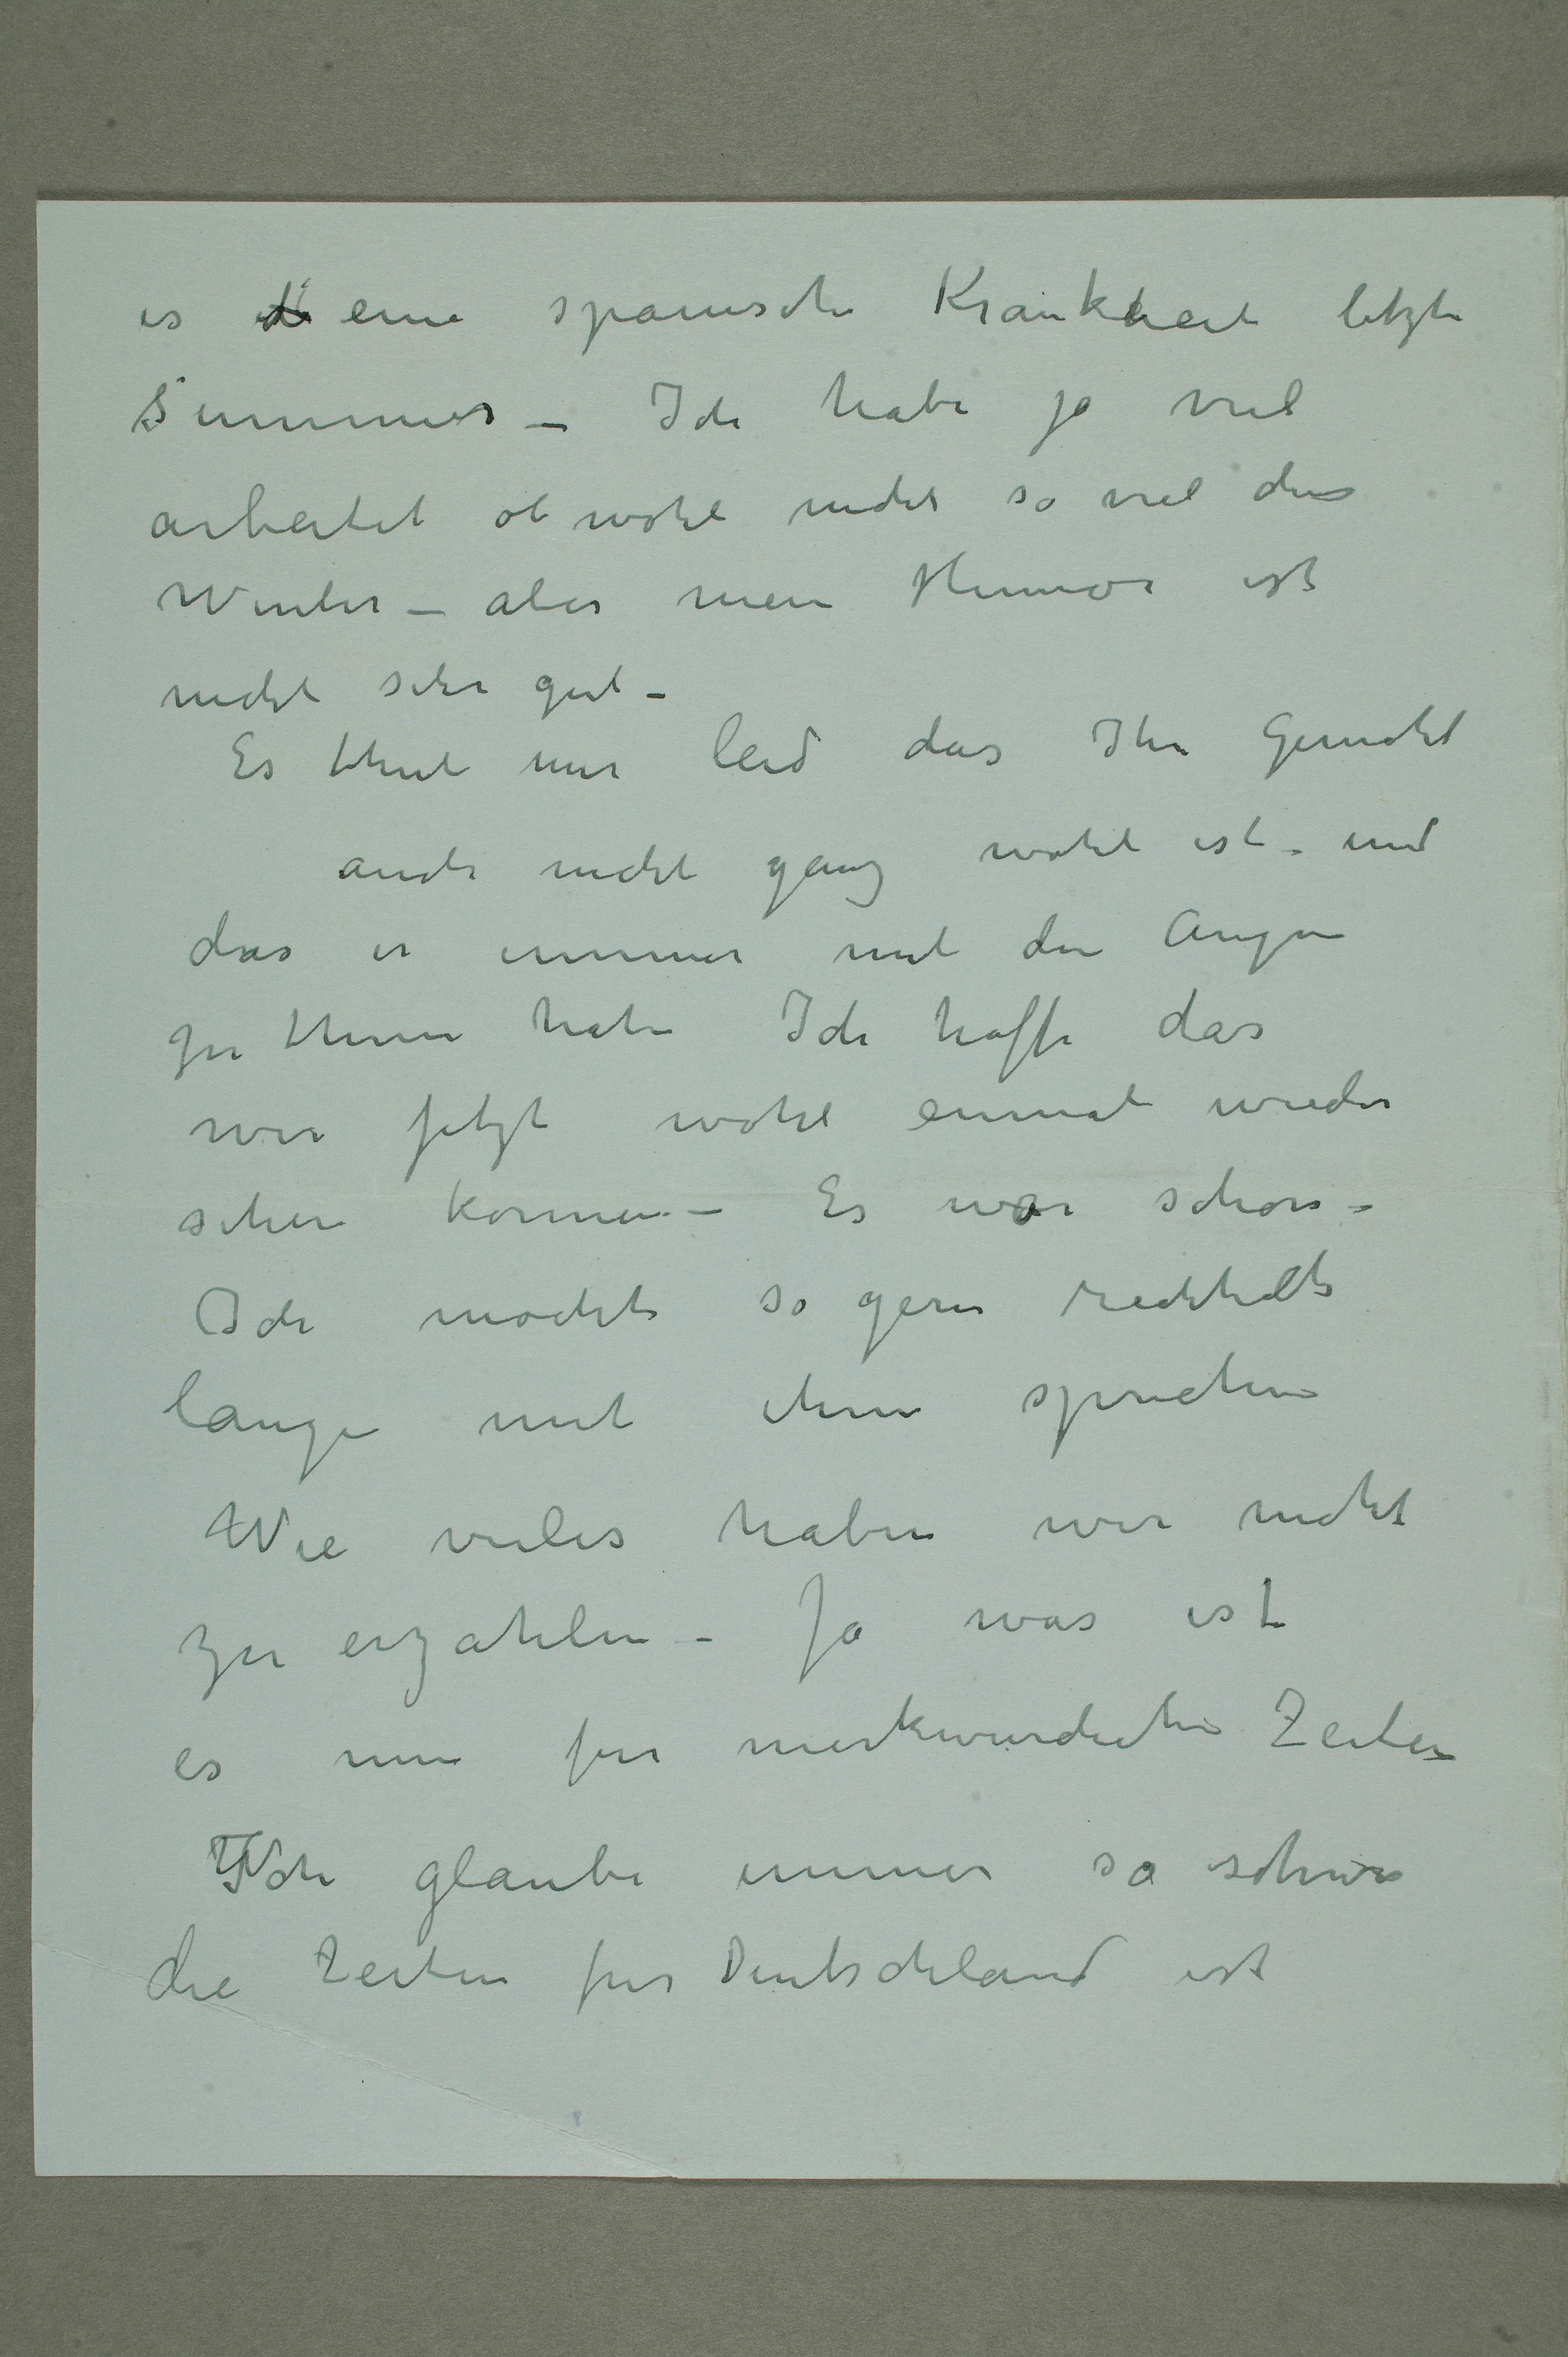 es eine spanische Krankheit letzte
Summer – Ich habe ja viel
arbeitet obwohl nicht so viel den
Winter – aber mein Humor ist
nicht sehr gut –
Es thut mir leid das Ihr Gemahl
auch nicht ganz wohl ist – und
das er immer mit den Augen
zu thuen hat – Ich hoffe das
wir jetzt wohl einmal wieder
sehen konnen – Es war schon –
Ich mochte so gern recht
lange mit ihm sprechen
Wie vieles haben wir nicht
zu erzahlen – Ja was ist
es nun fur merkwurdiche Zeiten
Ich glaube immer so schwer
die Zeiten fur Deutschland ist